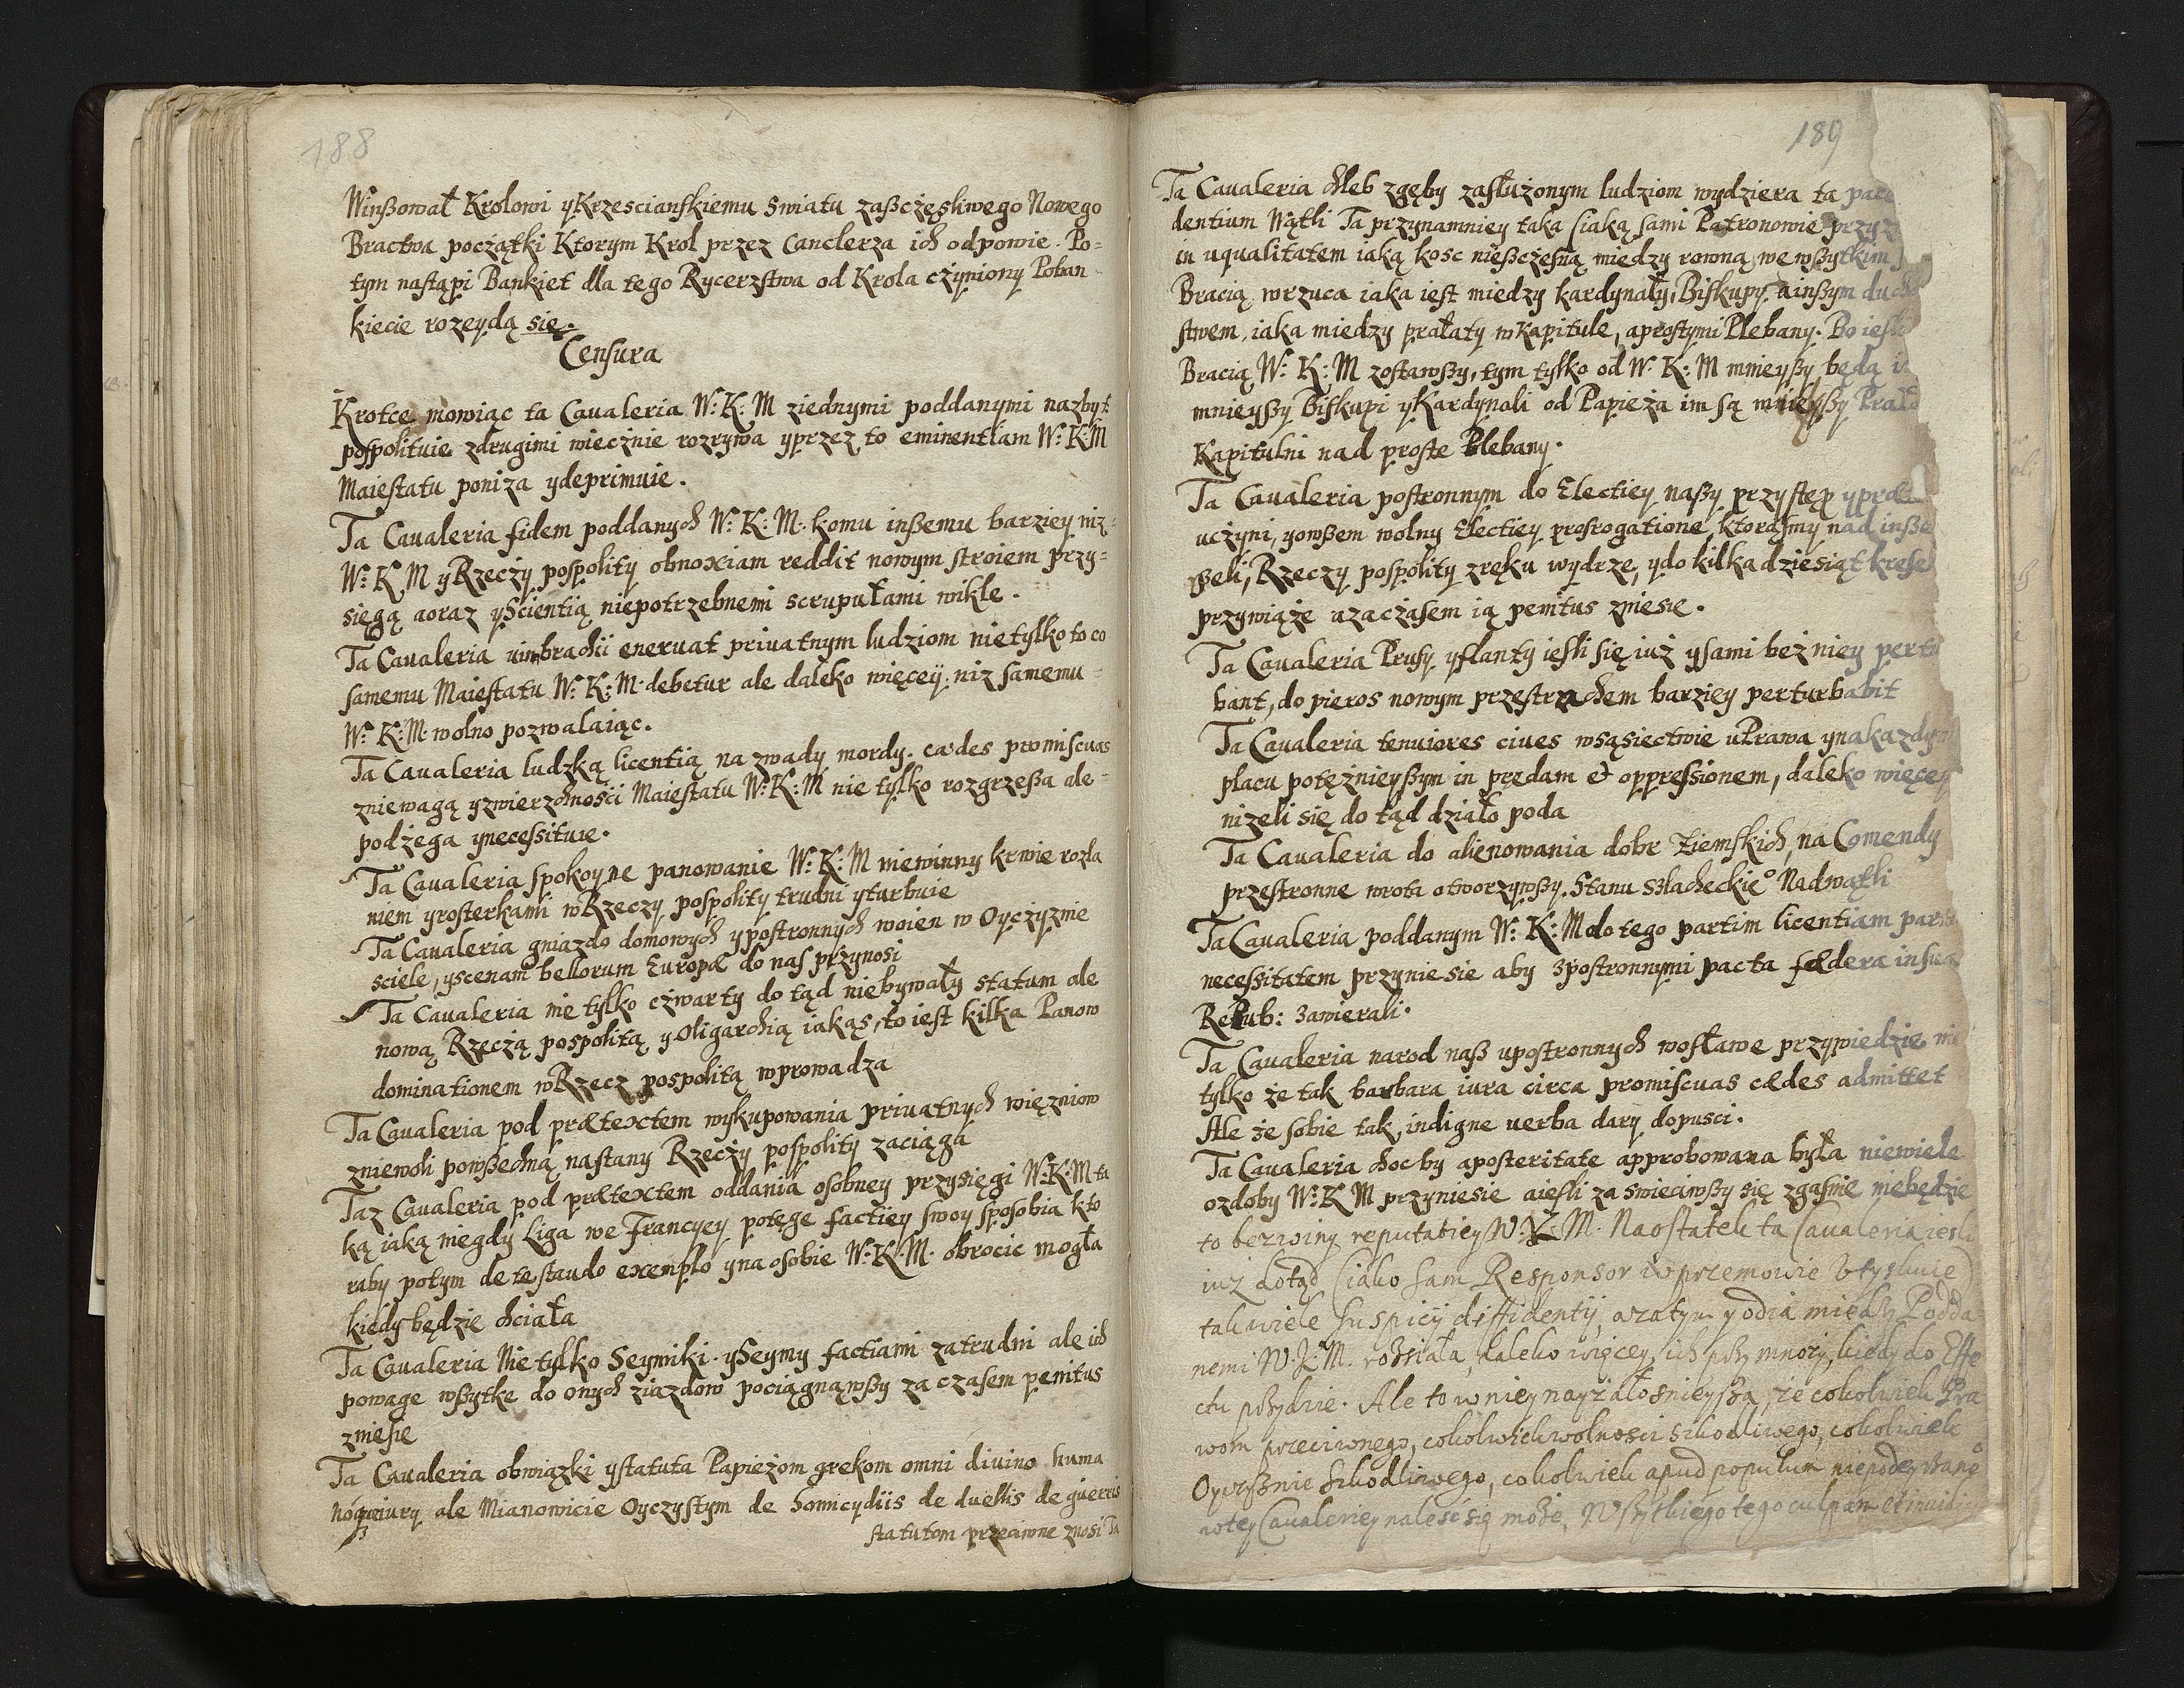 188
Winßował Krolowi y Krzescianskiemu swiatu zaßczęsliwego Nowego
Bractwa pocżątki Ktorym Krol przez Canclerza ich odpowie. Po=
tym nastąpi Bankiet dla tego Rycerzstwa od Krola cżyniony Poban
kiecie rozeydą się.
Censura
Krotce mowiąc ta Caualeria W: K: M ziednymi poddanymi nazbyt
pospolituie zdrugimi wiecżnie rozrywa yprzez to eminentiam W: K: M
Maiestatu poniża ydeprimuie.
Ta Caualeria fidem poddanych W: K: M. komu inßemu barziey niz=
W: K M yRzecży pospolity obnoxiam reddit nowym stroiem przy=
sięgą aoraz yScientią niepotrzebnemi scrupułami wikle.
Ta Caualeria uim brachii eneruat priuatnym ludziom nietylko to co
samemu Maiestatu W: K: M. debetur ale daleko więcey. niz samemu=
W: K: M. wolno pozwalaiąc.
Ta Caualeria ludzką licentią na zwady mordy. cædes promiscuas
zniewagą yzwierzchności Maiestatu W: K: M nie tylko rozgrzeßa ale=
podżega ynecessituie.
Ta Caualeria spokoyne panowanie W: K: M niewinny krwie rozla
niem yrosterkami wRzeczy pospolity trudni yturbuie
Ta Caualeria gniazdo domowych ypostronnych woien w Oycżyznie
sciele, yscenam bellorum Europæ do nas przynosi
Ta Caualeria nie tylko cżwarty do tąd niebywały statum ale
nową Rzecżą pospolitą y Oligarchią iakąs, to iest kilka Panow
dominationem wRzecz pospolitą wprowadza
Ta Caualeria pod prætextem wykupowania priuatnych więzniow
zniewoli powßechną nastany Rzecży pospolity zaciąga
Taz Caualeria pod prætextem oddania osobney przysięgi W: K: M ta
ką iaką niegdy Liga we Francyey potęge factiey swoy sposobia kto
raby potym detestando exemplo yna osobie W: K: M. obrocic mogła
kiedy będzie chciała
Ta Caualeria Nie tylko Seymiki ySeymy factiami zatrudni ale ich
powage wßytke do onych ziazdow pociągnąwßy za czasem penitus
zniesie
Ta Caualeria obwiązki ystatuta Papieżom grekom omni diuino huma
noque iury ale Mianowicie Oyczystym de homicydiis de duellis de guerris
statutom przeciwne znosi Ta
189
Ta Caualeria chleb zgęby zasłużonym ludziom wydziera ta
dentium Wątli Ta przynamniey taka siaką sami Patronowie
in uqualitatem iaką kosc nießcżesną miedzy rowną we wßytkim
Bracią wrzuca iaka iest miedzy kardynały, Biskupy, ainßym
stwem, iaka miedzy prałaty w Kapitule, aprostymi Plebany. Bo iesli
Bracią W: K: M zostawßy, tym tylko od W: K: M mnieyßy będą
mnieyßy Biskupi yKardynali od Papieża im są mnieyßy
Kapitulni nad proste Plebany.
Ta Caualeria postronnym do Electiey naßy przystęp
ucżyni, yowßem wolny Electiey prerogatione, ktorąsmy nad
Rzeczy pospolity zręku wydrze, ydo kilkadziesiąt
przywiąże azacżasem ią penitus zniesie.
Ta Caualeria Prusy yflanty iesli się iuż ysami beż niey
bant, do pieros nowym przestrachem barziey perturbabit
Ta Caualeria tenuiores ciues wsąsiectwie uPrawa ynakazdym
placu potężnieyßym in prędam et oppressionem, daleko więcey
niżeli się do tąd działo poda
Ta Caualeria do alienowania dobr Ziemskich, na Comendy
przestronne wrota otworzywßy. Stanu Szlacheckie° Nadwątli
Ta Caualeria poddanym W: K: M do tego partim licentiam
necessitatem przyniesie aby zpostronnymi pacta fædera
Repub: zawierali.
Ta Caualeria narod naß upostronnych wosławe przywiedzie
tylko że tak barbara iura circa promiscuas cædes admittet
Ale że sobie tak, indigne uerba dary dopusci.
Ta Caualeria choc by aposteritate approbowana była niewiele
ozdoby W: K M przyniesie aiesli za swieciwßy się zgasnie niebędzie
to bez winy reputatiey W. K. M. Naostatek ta Caualeria iesli
iuz dotąd (iako sam Responsor w przemowie
tak wiele suspicij diffidentij, azatym yodia miedzy Podda
nemi W. K. M. rozsiała, daleko więcey ich mnozy, kiedy do Effe
ctu przydzie. Ale to w niey nayżałosnieyßa, że cokolwiek Pra
wom przeciwnego, cokolwiek wolnosci szkodliwego, cokolwiek
Oyczyznie szkodliwego, cokolwiek apud populum
wtey Caualeriey nalesć się może, Wszytkiego tego culpam et